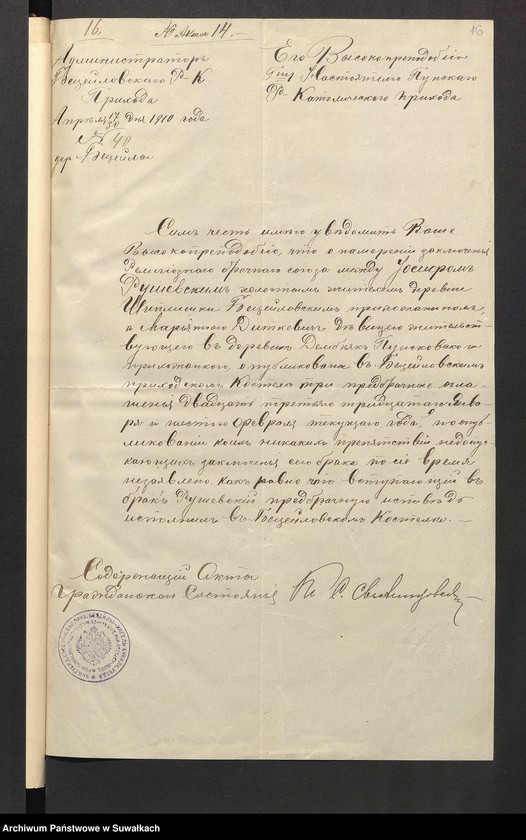 16. № Акта 14. 16
Администраторъ
Бецейловскаго Р-К
Прихода
Апрѣля 17/30 дня 1910 года
№ 40
дер. Бецейлы
Его Высокопреподобію
Гну Настоятелю Пунскаго
Р-Католическаго прихода
Симъ честь имѣю увѣдомить Ваше
Высокопреподобіе, что о намѣреніи заключенія
Религіознаго брачнаго союза между Іосифомъ
Рушевскимъ холостымъ жителемъ деревни
Шиплишки Бецейловскимъ прихожаниномъ,
а Маріянною Диткевич дѣвицею жительст-
вующею въ деревнѣ Пунскою
прихожанкою, опубликованы въ Бецейловскомъ
приходскомъ Костелѣ три предбрачные огла-
шенія двадцать третьяго тридцатаго Янва-
ря и шестого Февраля текущаго года, по опуб-
ликованіи коихъ никакихъ препятствій недопус-
кающихъ заключенія сего брака по сіе время
незаявлено, какъ равно что вступающій въ
бракъ Рушевскій предбрачную исповѣдь
исполнилъ въ Бецейловскомъ Костелѣ. —
Содержащій Акты
Гражданскаго Состоянія
Archiwum Państwowe w Suwałkach